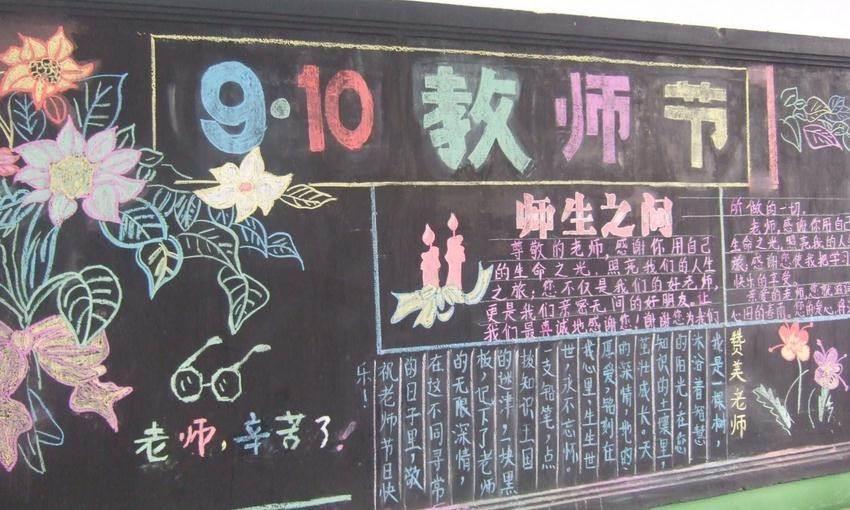 9·10 教师节
师生之间
尊敬的老师,感谢你用自己
的生命之光,照亮我们的人生
之旅;您不仅是我们的好老师,
更是我们亲密无间的好朋友。让
我们最真诚地感谢您!谢谢您为我们
所做的一切。
老师,感谢你用自己
生命之光,照亮我的人
旅,感谢您使我把学习
快乐的享受。
亲爱的老师
赞美老师
我是一棵树,
沐浴着智慧
的阳光,在您
知识的土壤里,
茁壮成长。天
的深情,地的
厚爱,铭刻在
我心里,生生世
世,永不忘怀。
一支铅笔,点
拨知识王国
的迷津;一块黑
板,记下了老师
的无限深情,
在这不同寻常
的日子里,敬
祝老师节日快
乐!
老师,辛苦了!